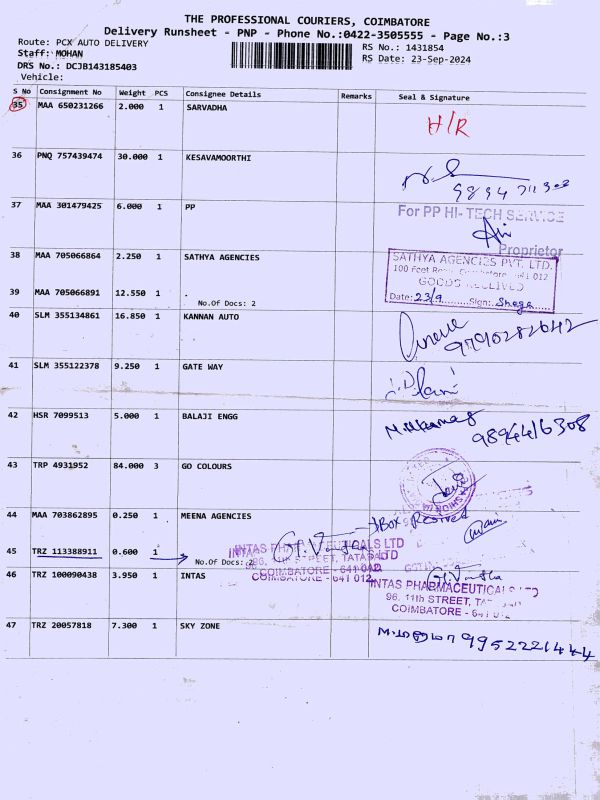 THE PROFESSIONAL COURIERS, COIMBATORE
Delivery Runsheet - PNP - Phone No.:0422-3505555 - Page No.:3
Route: PCX AUTO DELIVERY
RS No.: 1431854
Staff: MOHAN
RS Date: 23-Sep-2024
DRS No.: DCJB143185403
Vehicle:
S No Consignment No Weight PCS Consignee Details Remarks Seal & Signature
35 MAA 650231266 2.000 1 SARVADHA H/R
36 PNQ 757439474 30.000 1 KESAVAMOORTHI
37 MAA 301479425 6.000 1 PP For PP HI-TECH SERVICE
Proprietor
38 MAA 705066864 2.250 1 SATHYA AGENCIES SATHYA AGENCIES PVT. LTD.
100 Feet 641 012
GOODS RECEIVED
39 MAA 705066891 12.550 1 .
No.Of Docs: 2 Date: 23/9 Sign:
40 SLM 355134861 16.850 1 KANNAN AUTO
9790282642
41 SLM 355122378 9.250 1 GATE WAY
42 HSR 7099513 5.000 1 BALAJI ENGG
9894416308
43 TRP 4931952 84.000 3 GO COLOURS
44 MAA 703862895 0.250 1 MEENA AGENCIES
1 Box Resived
45 TRZ 113388911 0.600 1
No.Of Docs: 2
INTAS PHARMACEUTICALS LTD
STREET, TATABAD
COIMBATORE - 641 012
46 TRZ 100090438 3.950 1 INTAS INTAS PHARMACEUTICALS
96, 11th STREET,
COIMBATORE - 641 012
47 TRZ 20057818 7.300 1 SKY ZONE 9952221444